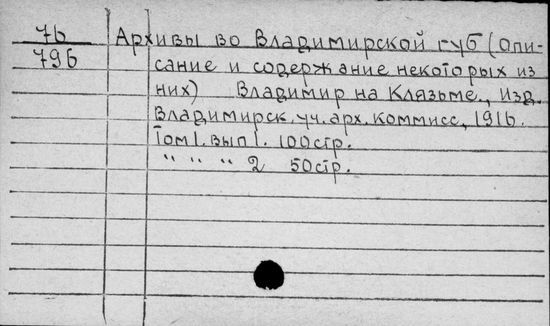 76
796
Архивы во Владимирской губ (Опи-
сание и содержание некоторых из
них) Владимир на Клязьме., Изд.
Владимирск. уч. арх. коммисс, 1916.
Том 1. вып 1. 100 стр.
" " " 2 50 стр.